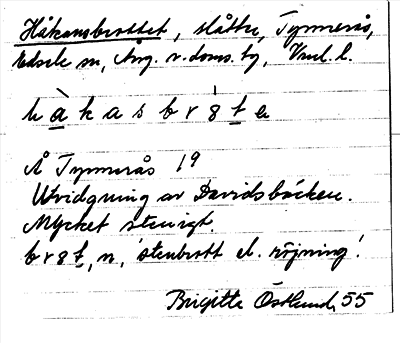 Håkansbrottet, slåtter, Tynnerås,
Edsele sn, Ång. v. doms. tg, Vnl. l.
h à k a s b r 8 t e
Å Tynnerås 19
Utvidgning av Davidsbäcken.
Mycket stenigt.
br8t, n, 'stenbrott el. röjning'.
Brigitte Östlund, 55